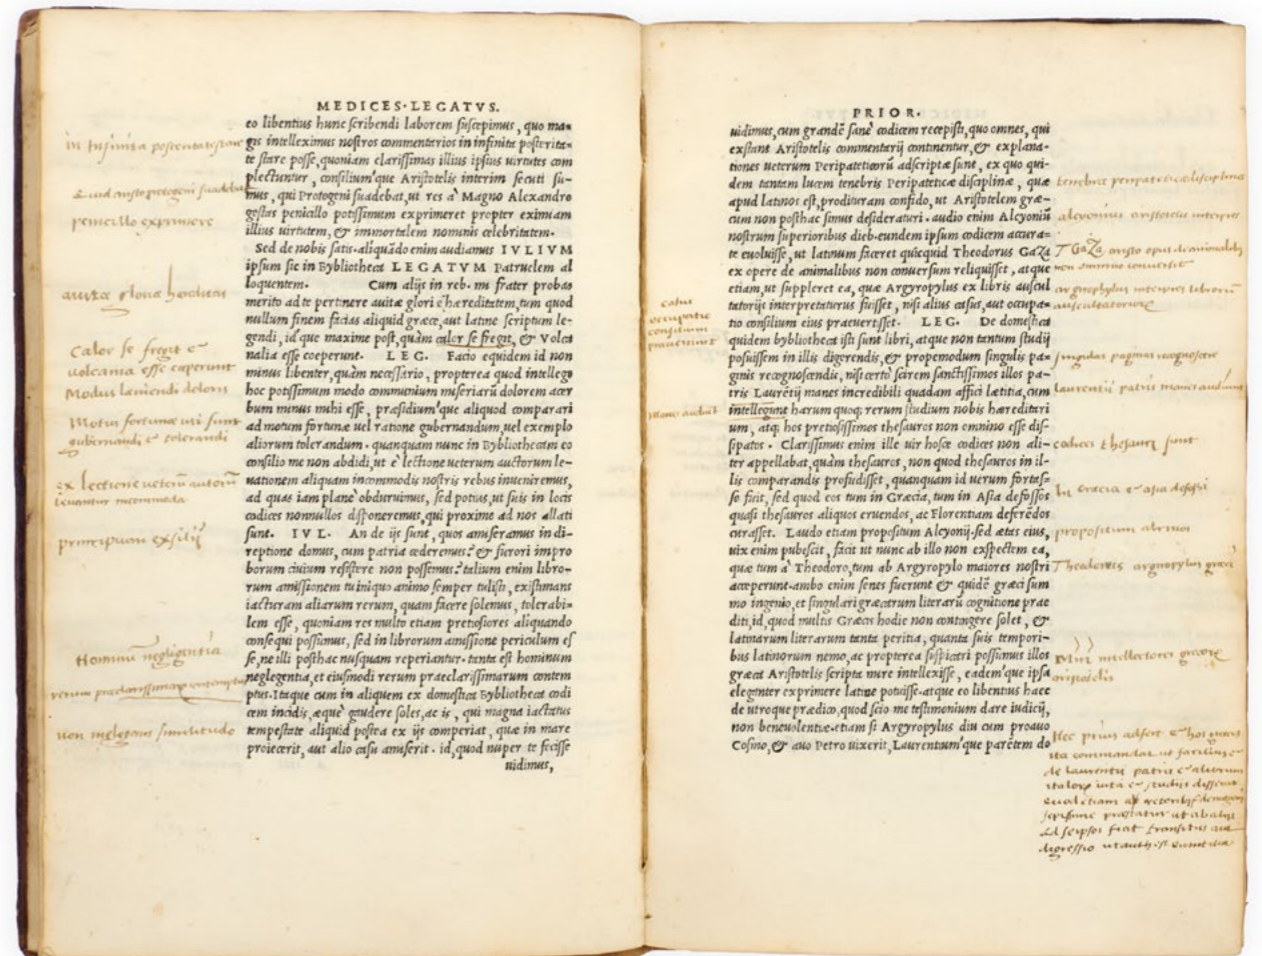 MEDICES·LEGATVS.
eo libentius hunc scribendi laborem suscepimus, quo ma=
gis intelleximus nostros commentarios in infinita posterita=
te stare posse, quoniam clarissimas illius ipsius uirtutes com
plectuntur, consilium'que Aristotelis interim secuti su=
mus, qui Protogeni suadebat, ut res à Magno Alexandro
gestas penicillo potissimum exprimeret propter eximiam
illius uirtutem, & immortalem nominis celebritatem.
Sed de nobis satis. aliquādo enim audiamus IVLIVM
ipsum sic in Bybliotheca LEGATVM Patruelem al
loquentem. Cum alijs in reb. mi frater probas
merito ad te pertinere auitæ glori e hæreditatem, tum quod
nullum finem facias aliquid græce, aut latine scriptum le=
gendi, id que maxime post, quàm calor se fregit, & Volca
nalia esse coeperunt. LEG. Facio equidem id non
minus libenter, quàm necessario, propterea quod intellego
hoc potissimum modo communium miseriarū dolorem acer
bum minus mihi esse, præsidium'que aliquod comparari
ad motum fortunæ uel ratione gubernandum, uel exemplo
aliorum tolerandum. quanquam nunc in Bybliothecam eo
consilio me non abdidi, ut è lectione ueterum auctorum le=
uationem aliquam incommodis nostris rebus inueniremus,
ad quas iam plane obduruimus, sed potius, ut suis in locis
codices nonnullos disponeremus, qui proxime ad nos allati
sunt. IVL. An de ijs sunt, quos amiseramus in di=
reptione domus, cum patria cederemus? & furori impro
borum ciuium resistere non possemus? talium enim libro=
rum amissionem tu iniquo animo semper tulisti, existimans
iacturam aliarum rerum, quam facere solemus, tolerabi=
lem esse, quoniam res multo etiam pretiosiores aliquando
consequi possimus, sed in librorum amissione periculum es
se, ne illi posthac nusquam reperiantur. tanta est hominum
neglegentia, et eiusmodi rerum praeclarissimarum contem
ptus. Itaque cum in aliquem ex domestica Bybliotheca codi
cem incidis, æque gaudere soles, ac is, qui magna iactatus
tempestate aliquid postea ex ijs comperiat, quæ in mare
proiecerit, aut alio casu amiserit. id, quod nuper te fecisse
uidimus,
penicillo exprimere
Calor se fregit &
volcania esse ceperunt
Modus leniendi doloris
gubernandi & tolerandi
principium exilij
Hominū negligentia
PRIOR.
uidimus, cum grandē sanè codicem recepisti, quo omnes, qui
exstant Aristotelis commentarij continentur, & explana=
tiones ueterum Peripateticorū adscriptæ sunt, ex quo qui=
dem tantam lucem tenebris Peripateticæ disciplinæ, quæ
apud latinos est, prodituram confido, ut Aristotelem græ=
cum non posthac simus desideraturi. audio enim Alcyoniū
nostrum superioribus dieb. eundem ipsum codicem accura=
te euoluisse, ut latinum faceret quicquid Theodorus GaZa
ex opere de animalibus non conuersum reliquisset, atque
etiam, ut suppleret ea, quæ Argyropylus ex libris auscul
tatorijs interpretaturus fuisset, nisi alius casus, aut occupa=
tio consilium eius praeuertisset. LEG. De domestica
quidem bybliotheca isti sunt libri, atque non tantum studij
posuissem in illis digerendis, & propemodum singulis pa=
ginis recognoscendis, nisi certò scirem sanctissimos illos pa=
tris Laurētij manes incredibili quadam affici lætitia, cum
intellegunt harum quoq; rerum studium nobis hæreditari
um, atq; hos pretiosissimos thesauros non omnino esse dis=
sipatos. Clarissimus enim ille uir hosce codices non ali=
ter appellabat, quàm thesauros, non quod thesauros in il=
lis comparandis profudisset, quanquam id uerum fortas=
se ficit, sed quod eos tum in Græcia, tum in Asia defossos
quasi thesauros aliquos eruendos, ac Florentiam deferēdos
curasset. Laudo etiam propositum Alcyonij. sed ætas eius,
uix enim pubescit, facit ut nunc ab illo non exspectem ea,
quæ tum à Theodoro, tum ab Argyropylo maiores nostri
acceperunt. ambo enim senes fuerunt & quidē græci sum
mo ingenio, et singulari græcarum literarū cognitione prae
diti, id, quod multis Græcis hodie non contingere solet, &
latinarum literarum tanta peritia, quanta suis tempori=
bus latinorum nemo, ac propterea suspicari possumus illos
græca Aristotelis scripta mire intellexisse, eadem'que ipsa
eleganter exprimere latine potuisse. atque eo libentius haec
de utroque prædico, quod scio me testimonium dare iudicij,
non beneuolentiæ. etiam si Argyropylus diu cum proauo
Cosmo, & auo Petro uixerit, Laurentium'que parētem do
casus
occupatio
consilium
tenebræ peripateticæ disciplinæ
alcyonius aristotelis interpres
singulas paginas recognoscere
codices thesauri sunt
In Grecia & asia defossi
aristotelis